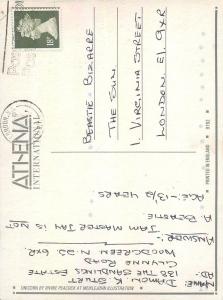 NAME: DAMON K. STURT
AD: 138 THE SANDLINGS ESTATE
CLUNNE ROAD
WOODGREEN N-22. 6XR.
ANSWER:
JAM MASTER JAY IS NOT
A BEASTIE
AGE - 13½ YEARS
ATHENA
INTERNATIONAL
BEASTIE BIZARRE
THE SUN
1. VIRGINIA STREET
LONDON. E1. 9XR
18P
UNICORN BY IRVINE PEACOCK AT MEIKLEJOHN ILLUSTRATION
PRINTED IN ENGLAND